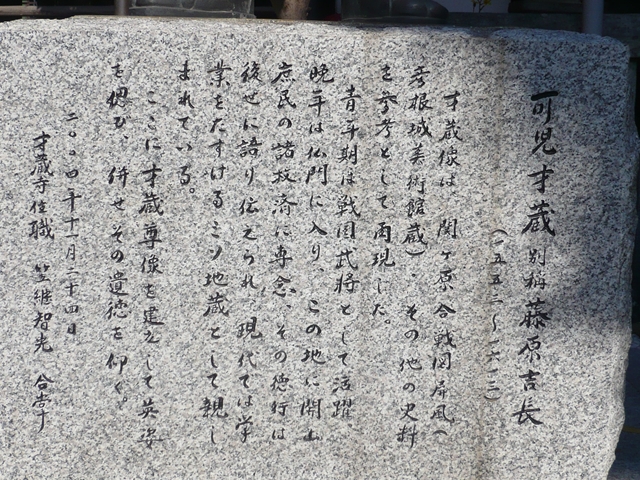 可児才蔵 別称 藤原吉長
(一五五二〜一六一三)
才蔵像は 関ヶ原合戦図屏風(
彦根城美術館蔵)、その他の史料
を参考として再現した。
青年期は戦国武将として活躍
晩年は仏門に入り、この地に開山
庶民の諸救済に専念、その徳行は
後世に語り伝えられ、現代では学
業をたすけるミソ地蔵として親し
まれている。
ここに才蔵尊像を建立して英姿
を偲び、併せその遺徳を仰ぐ。
二〇〇四年十一月二十四日
才蔵寺住職 笠維智光 合掌